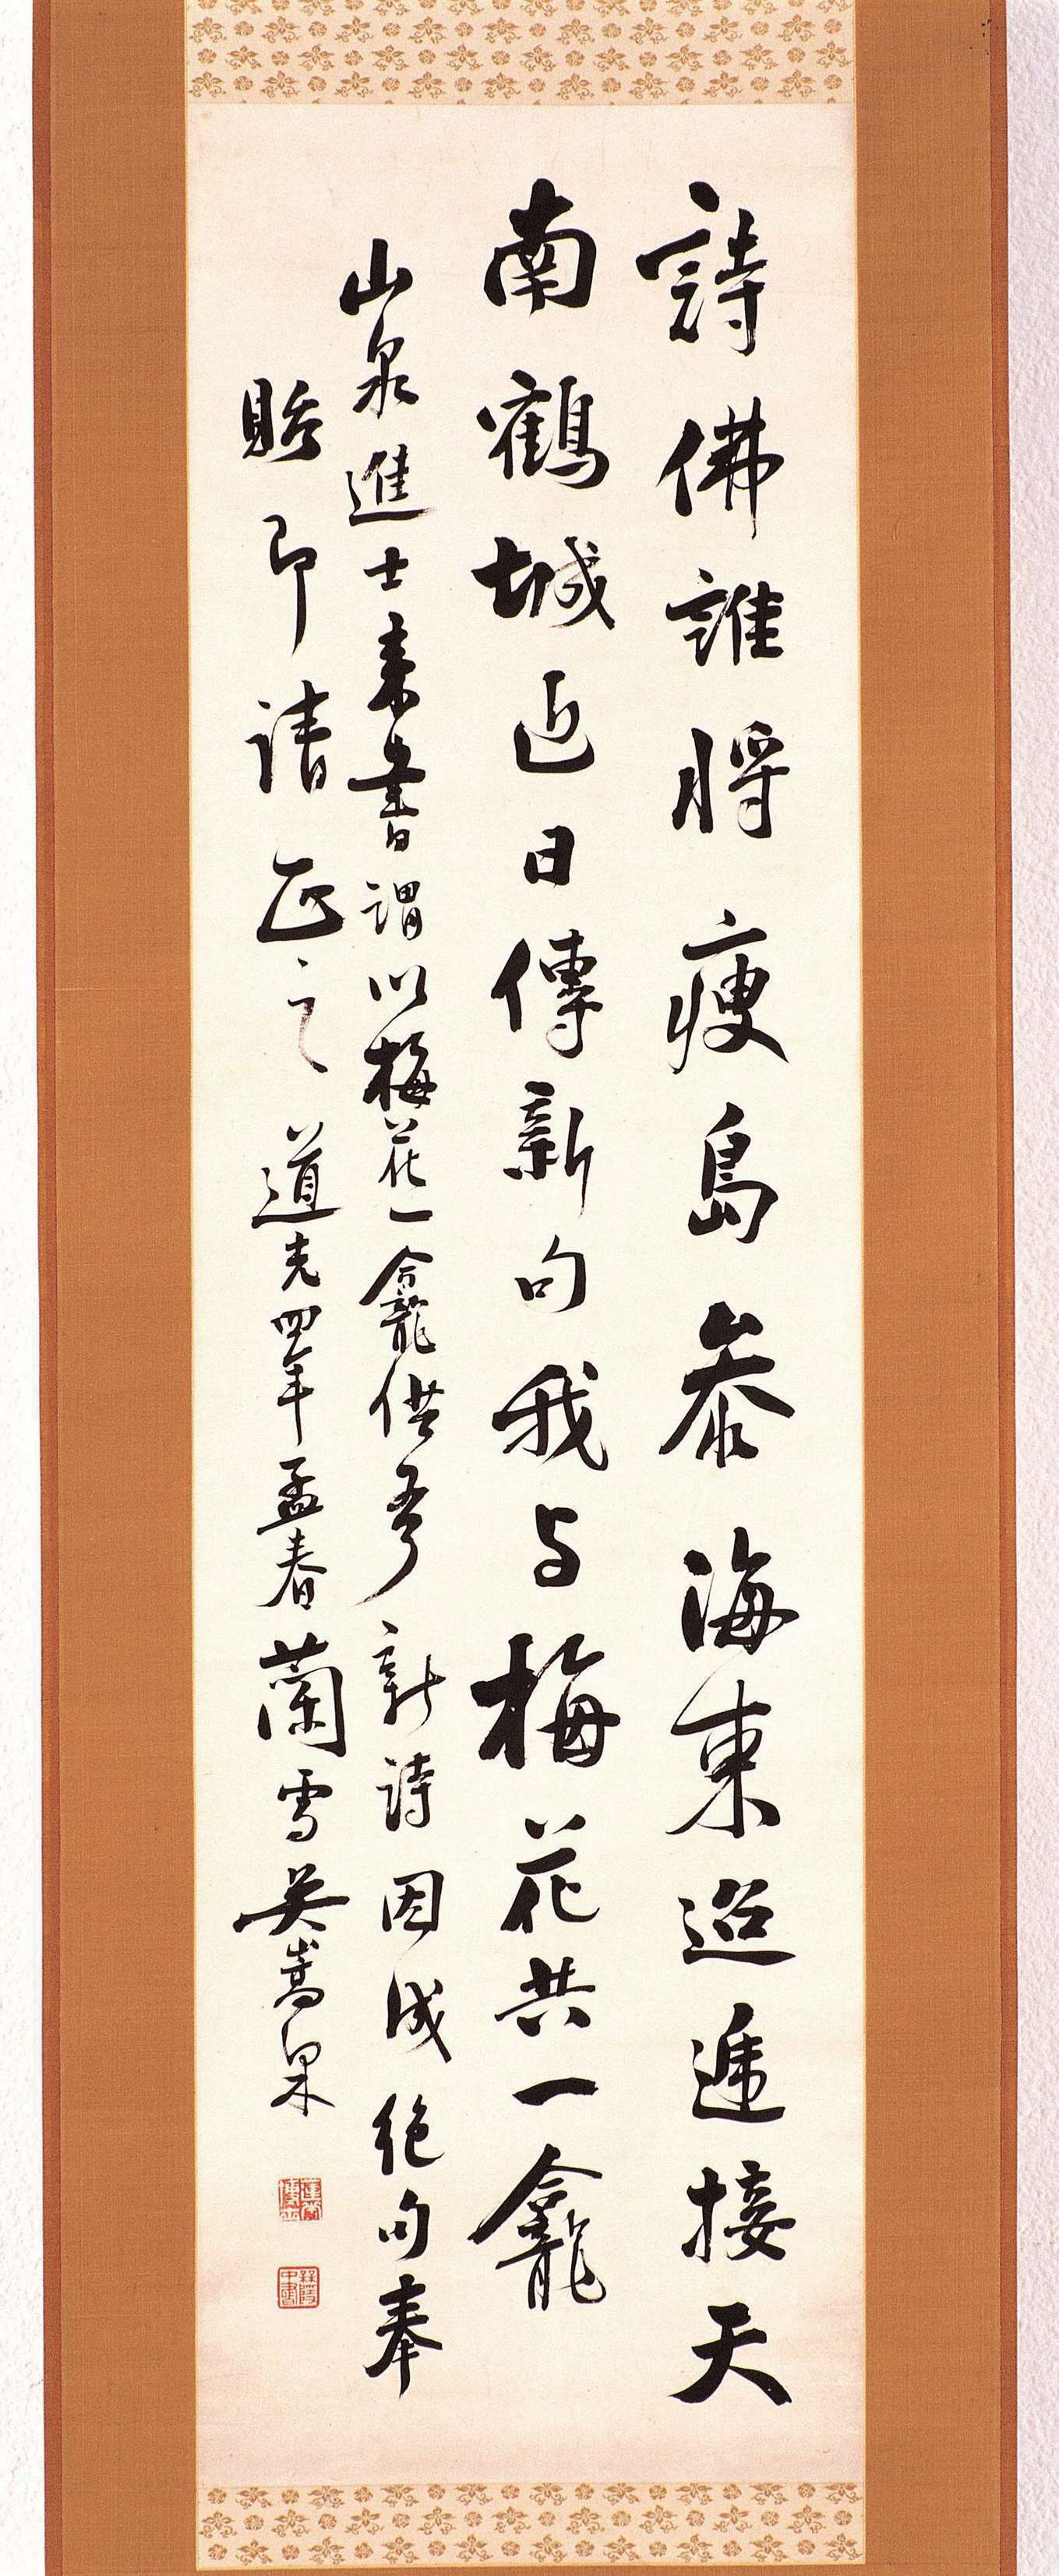 詩佛誰將瘦島叅海東迢遞接天
南鶴城近日傳新句我与梅花共一龕
山泉進士来書謂以梅花一龕供吾新詩因成絶句奉
貽即請正之道光四年孟春蘭雪吳嵩梁